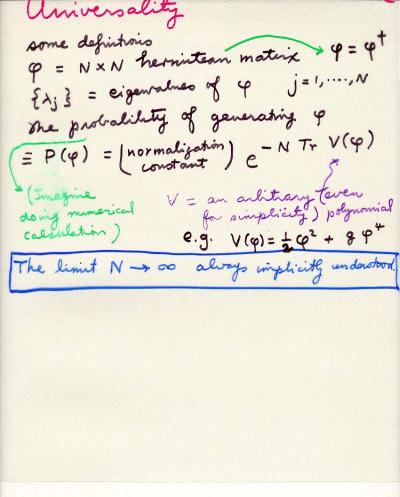 Universality
some definitions
φ = N×N hermitean matrix φ = φ†
{λj} = eigenvalues of φ j = 1, ...., N
The probability of generating φ
≡ P(φ) = (normalization constant) e^{-N Tr V(φ)}
(Imagine doing numerical calculation)
V = an arbitrary (even for simplicity) polynomial
e.g. V(φ) = ½ φ² + g φ⁴
The limit N → ∞ always implicitly understood